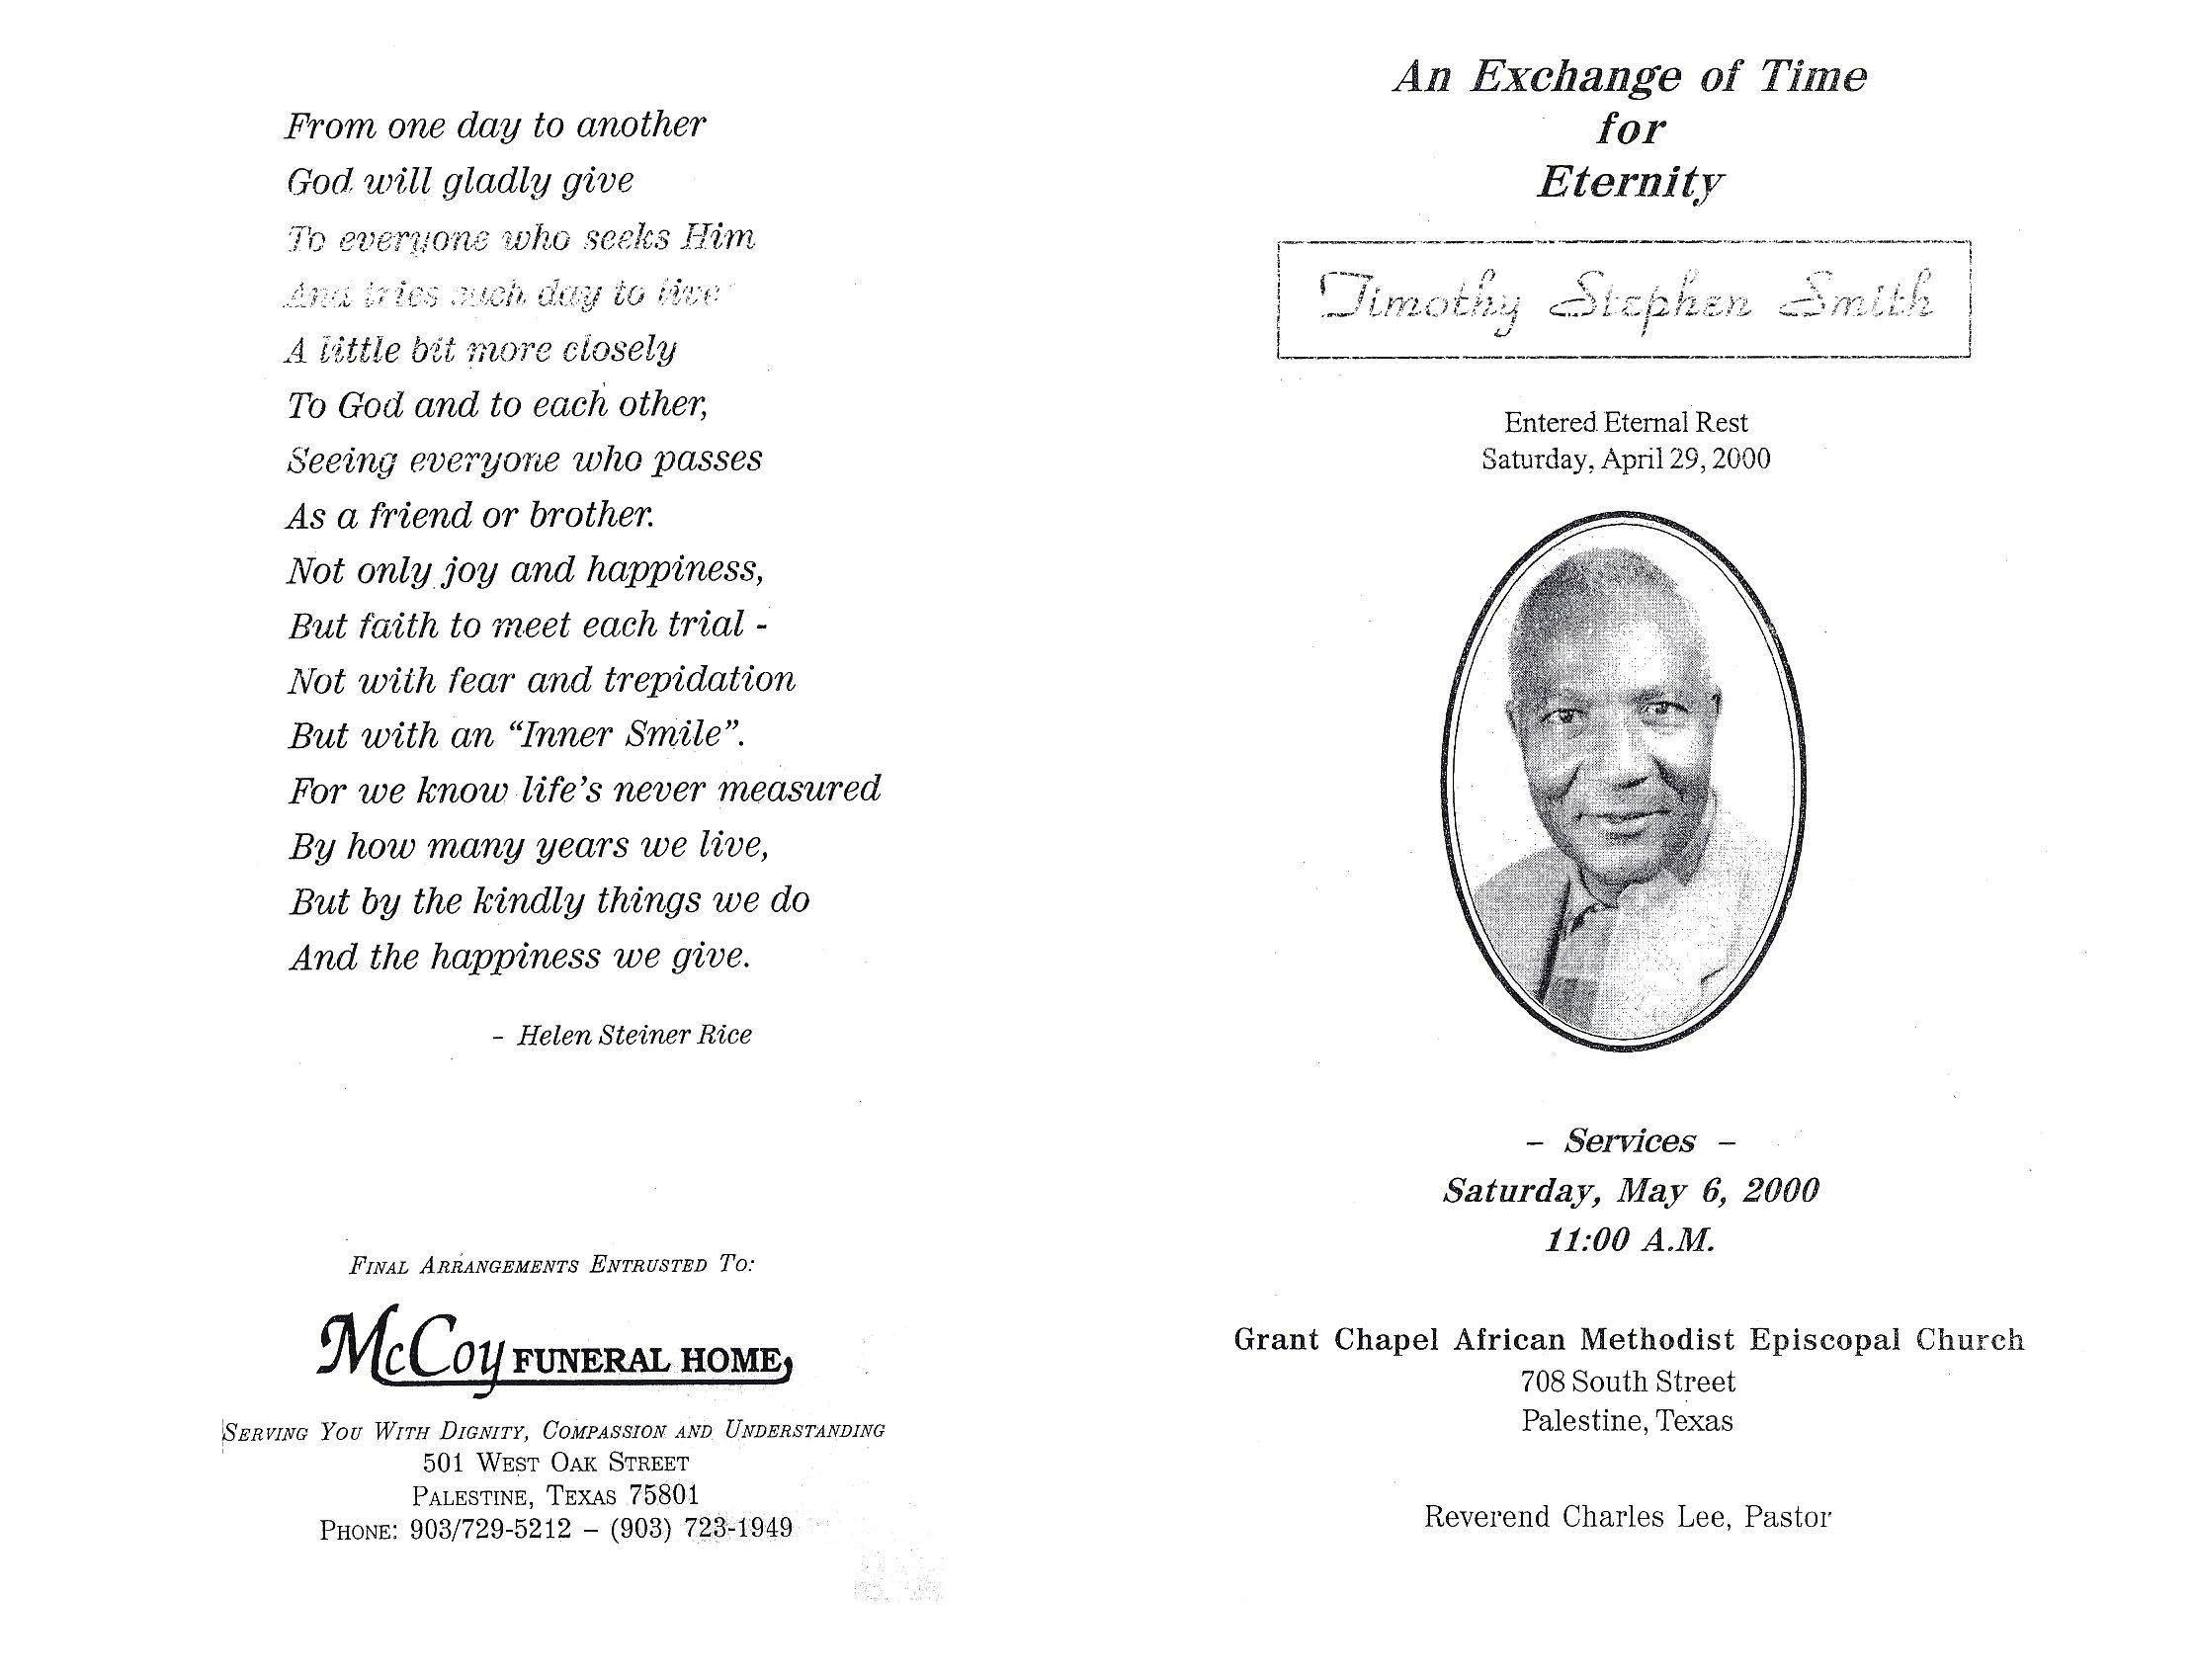 From one day to another
God will gladly give
To everyone who seeks Him
And tries each day to live
A little bit more closely
To God and to each other,
Seeing everyone who passes
As a friend or brother.
Not only joy and happiness,
But faith to meet each trial -
Not with fear and trepidation
But with an “Inner Smile”.
For we know life’s never measured
By how many years we live,
But by the kindly things we do
And the happiness we give.
- Helen Steiner Rice
FINAL ARRANGEMENTS ENTRUSTED TO:
McCoy FUNERAL HOME
SERVING YOU WITH DIGNITY, COMPASSION AND UNDERSTANDING
501 WEST OAK STREET
PALESTINE, TEXAS 75801
PHONE: 903/729-5212 – (903) 723-1949
An Exchange of Time
for
Eternity
Timothy Stephen Smith
Entered Eternal Rest
Saturday, April 29, 2000
– Services –
Saturday, May 6, 2000
11:00 A.M.
Grant Chapel African Methodist Episcopal Church
708 South Street
Palestine, Texas
Reverend Charles Lee, Pastor